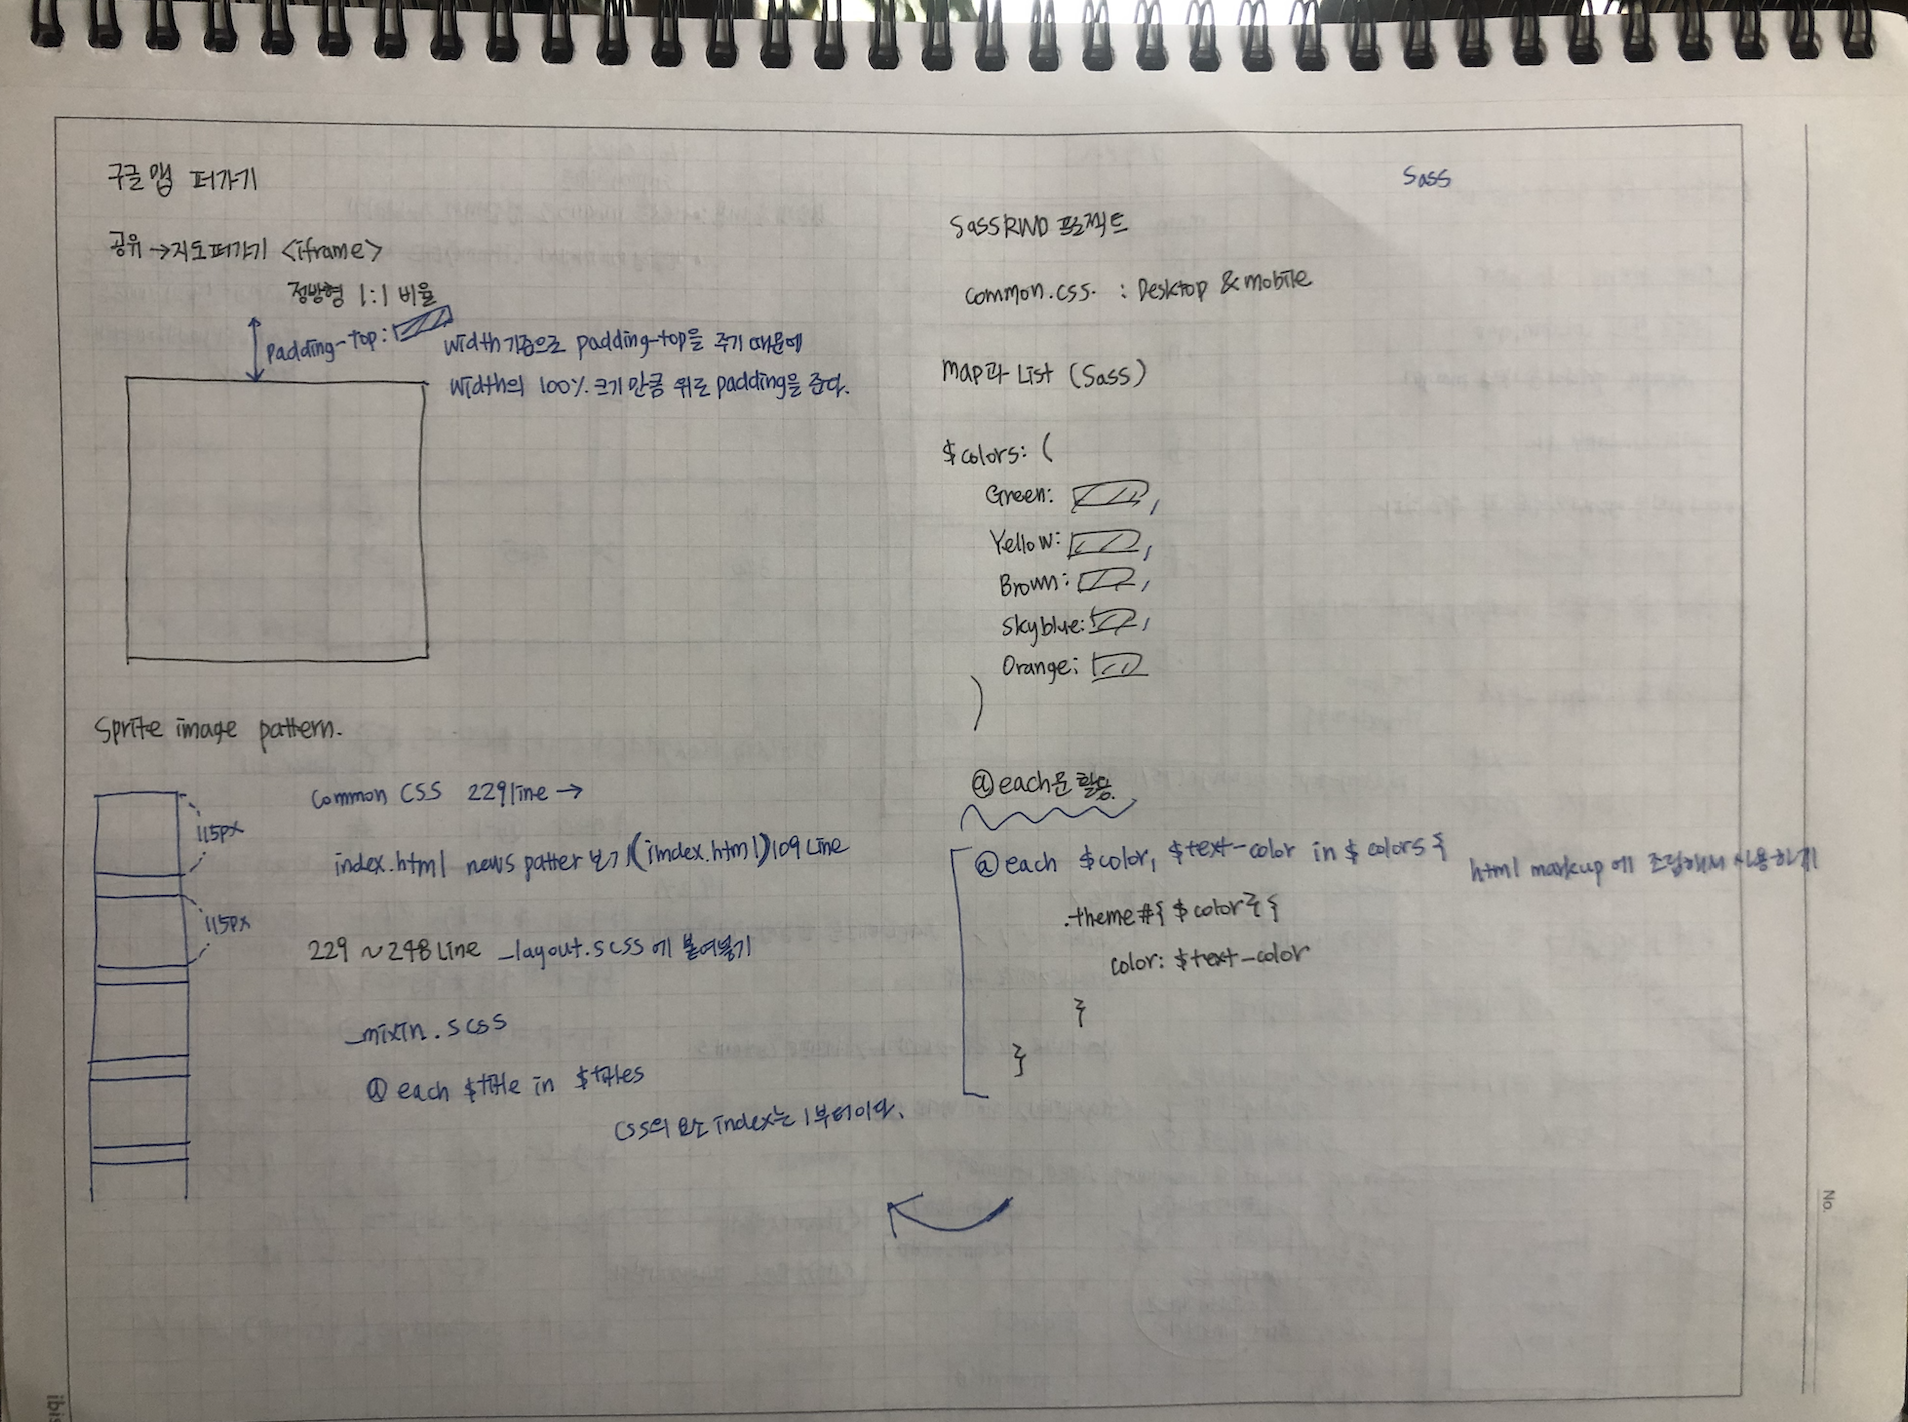 구글 맵 퍼가기
공유 → 지도퍼가기 <iframe>
정방형 1:1 비율
padding-top:
width 기준으로 padding-top을 주기 때문에
width의 100% 크기만큼 위로 padding을 준다.
Sprite image pattern.
115px
115px
common CSS 229line →
index.html news patter 보기 (index.html) 109 Line
229 ~ 248 Line _layout.scss에 붙여넣기
_mixin.scss
@each $title in $titles
CSS의 요소 index는 1부터이다.
Sass
Sass RWD 프로젝트
common.css. : Desktop & mobile
map과 List (Sass)
$colors: (
Green: ,
Yellow: ,
Brown: ,
Skyblue: ,
Orange:
)
@each문 활용
@each $color, $text-color in $colors {
html markup에 조립해서 사용하기
.theme#{$color} {
color: $text-color
}
}
No.
ibis